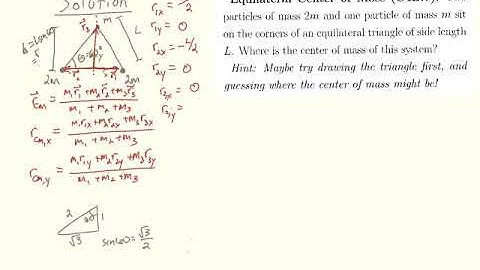 Solution
m
L
θ=60°
2m
2m
r⃗cm = m₁r⃗₁+m₂r⃗₂+m₃r⃗₃ / m₁ + m₂ + m₃
rcm,x = m₁r₁x+m₂r₂x+m₃r₃x / m₁ + m₂ + m₃
rcm,y = m₁r₁y+m₂r₂y+m₃r₃y / m₁ + m₂ + m₃
2
60°
1
√3
sin60=√3/2
r₁y = 0
r₂x = -L/2
r₂y = 0
r₃x = 0
r₃y =
particles of mass 2m and one particle of mass m sit
on the corners of an equilateral triangle of side length
L. Where is the center of mass of this system?
Hint: Maybe try drawing the triangle first, and
guessing where the center of mass might be!